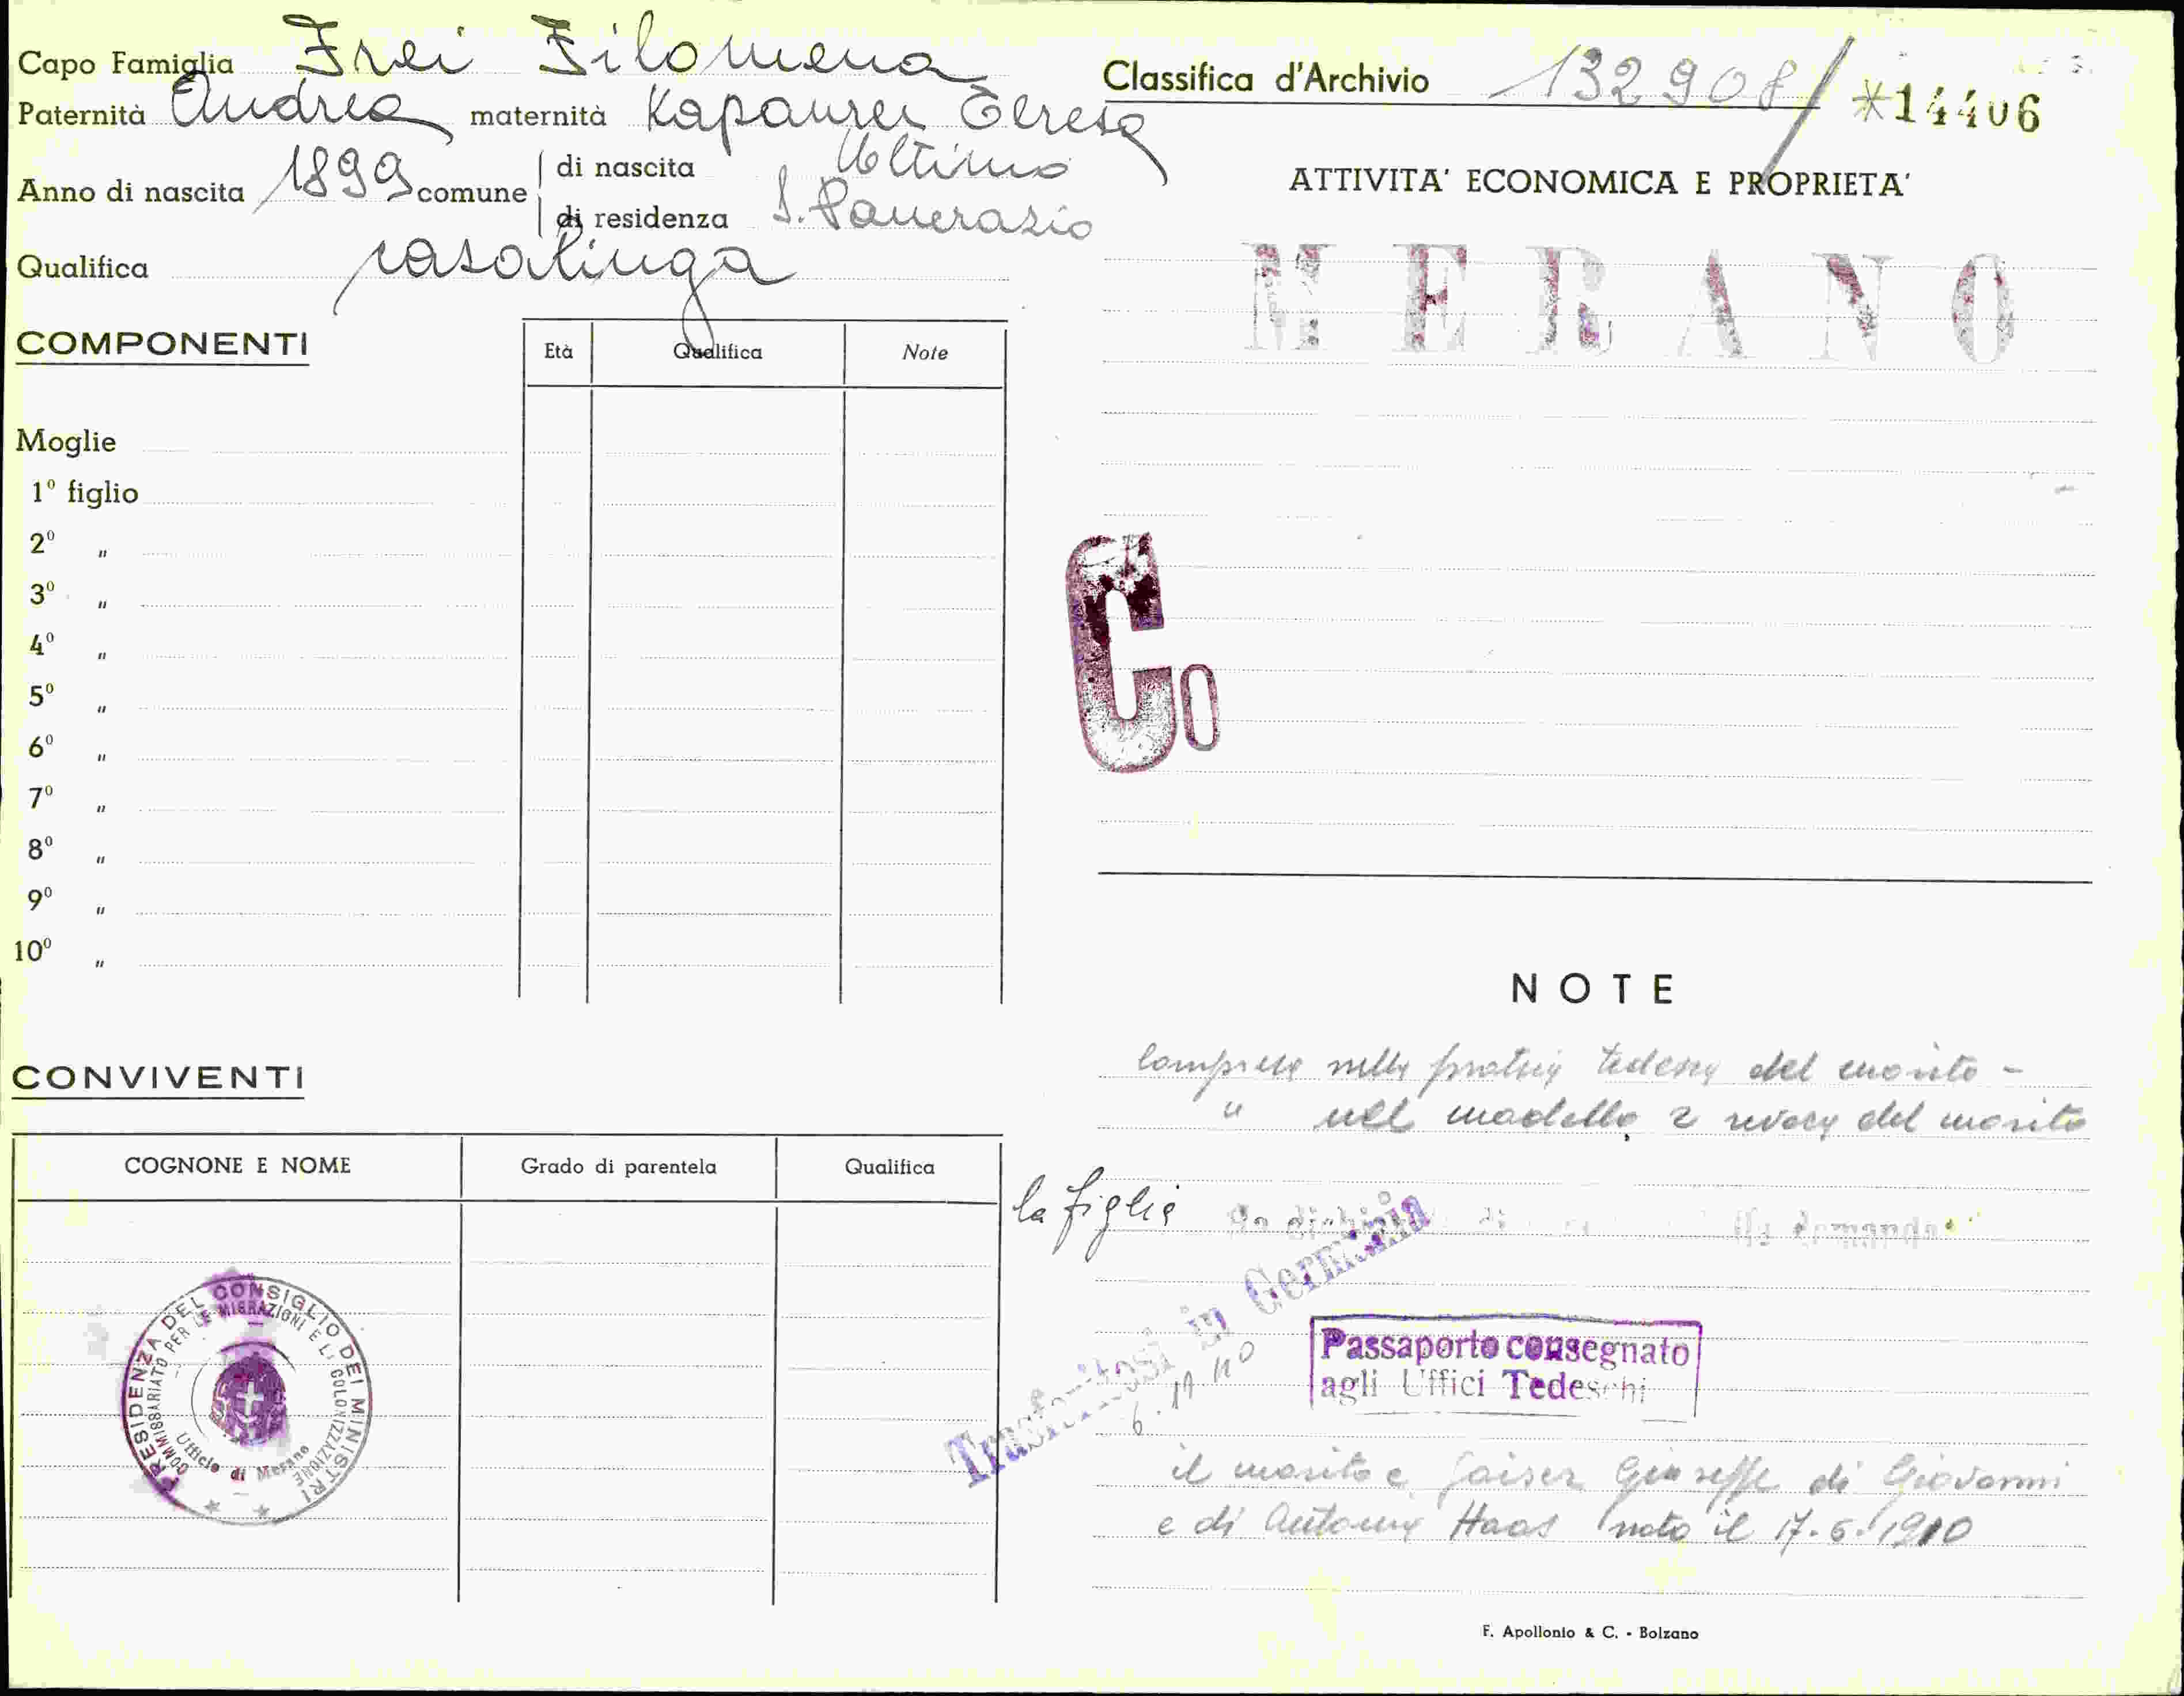 Capo Famiglia Frei Filomena
Paternità Andrea maternità Kapaurer Teresa
Anno di nascita 1899 comune di nascita Ultimo
di residenza S. Pancrazio
Qualifica casalinga
COMPONENTI
Età Qualifica Note
Moglie
1º figlio
2º "
3º "
4º "
5º "
6º "
7º "
8º "
9º "
10º "
CONVIVENTI
COGNONE E NOME Grado di parentela Qualifica
PRESIDENZA DEL CONSIGLIO DEI MINISTRI
COMMISSARIATO PER LE MIGRAZIONI E LA COLONIZZAZIONE
Ufficio di Merano
Classifica d'Archivio 132908/ *14406
ATTIVITA' ECONOMICA E PROPRIETA'
MERANO
Co
NOTE
compresa nella pratica tedesca del marito -
" nel modello 2 revoca del marito
la figlia
Trasferitosi in Germania
6.11.40
Passaporto consegnato
agli Uffici Tedeschi
il marito è Gaiser Giuseppe di Giovanni
e di Antonia Haas nato il 17.6.1910
F. Apollonio & C. - Bolzano